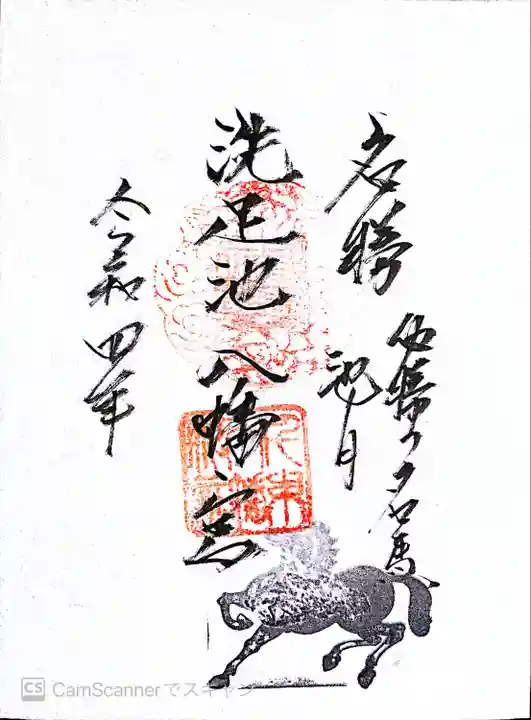 名勝
伝説の名馬
池月
洗足池八幡宮
令和四年
CS CamScannerでスキャン